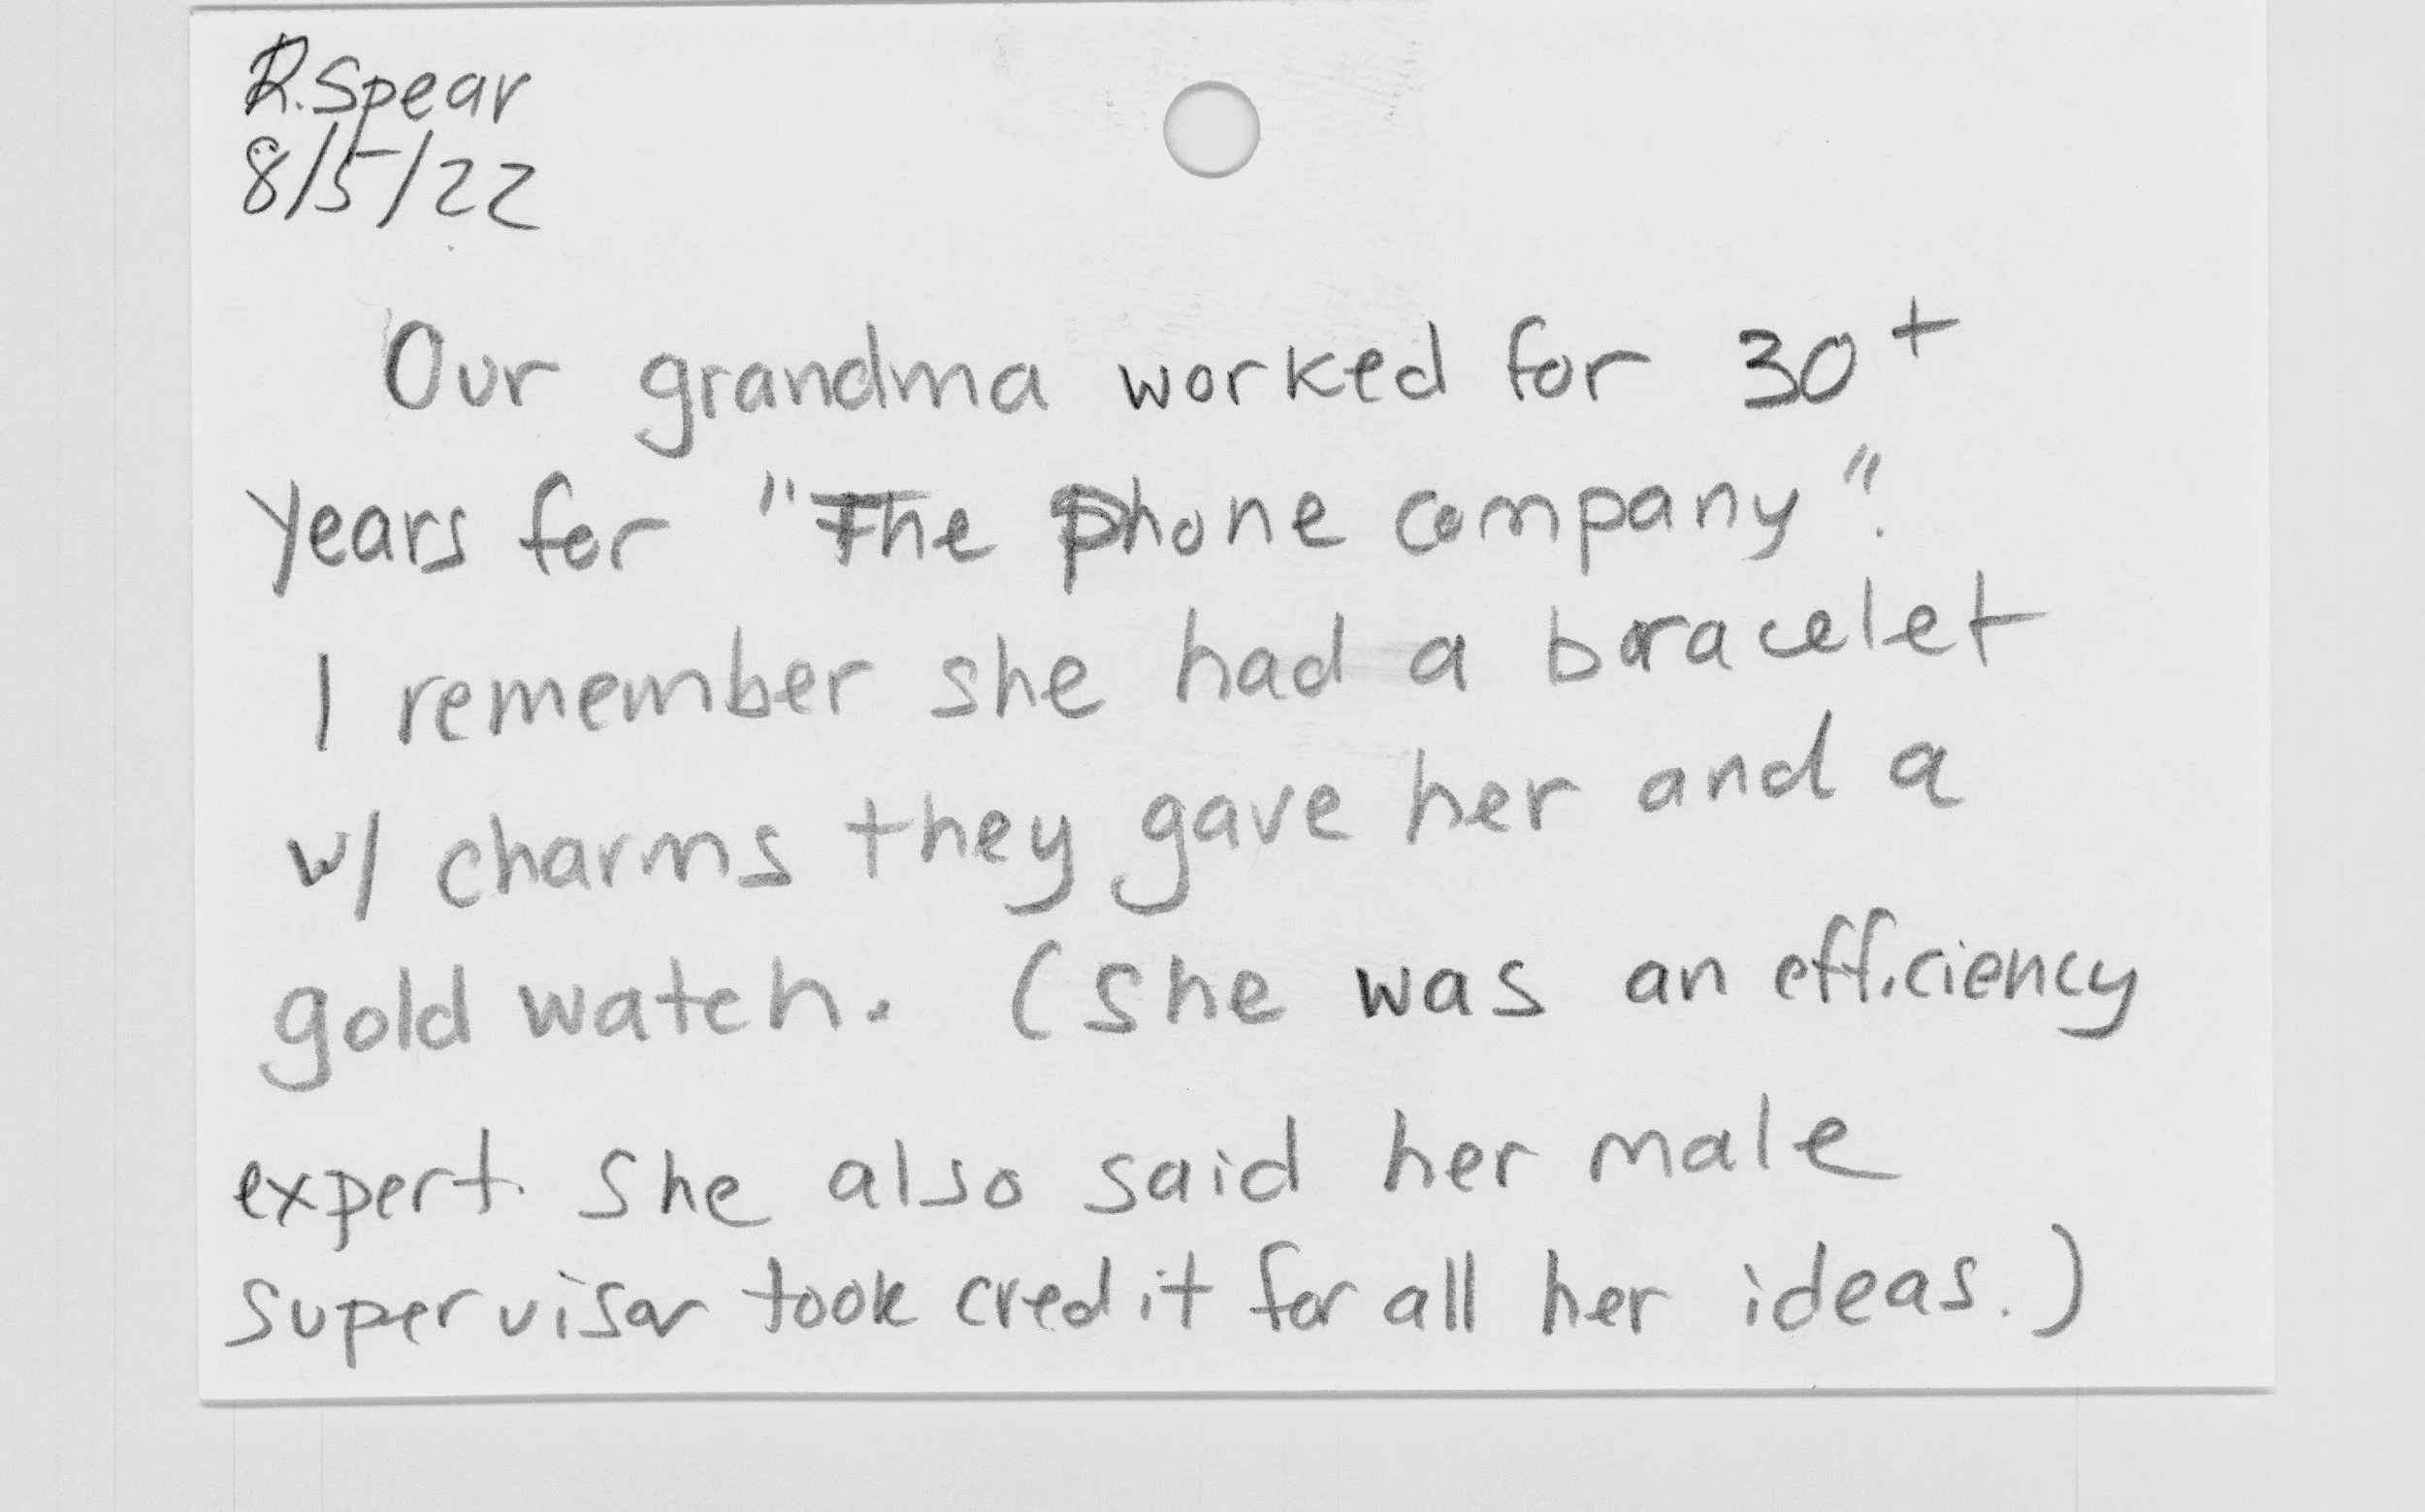 R. Spear
8/5/22
Our grandma worked for 30+
years for "The Phone company".
I remember she had a bracelet
w/ charms they gave her and a
gold watch. (She was an efficiency
expert. She also said her male
supervisor took credit for all her ideas.)